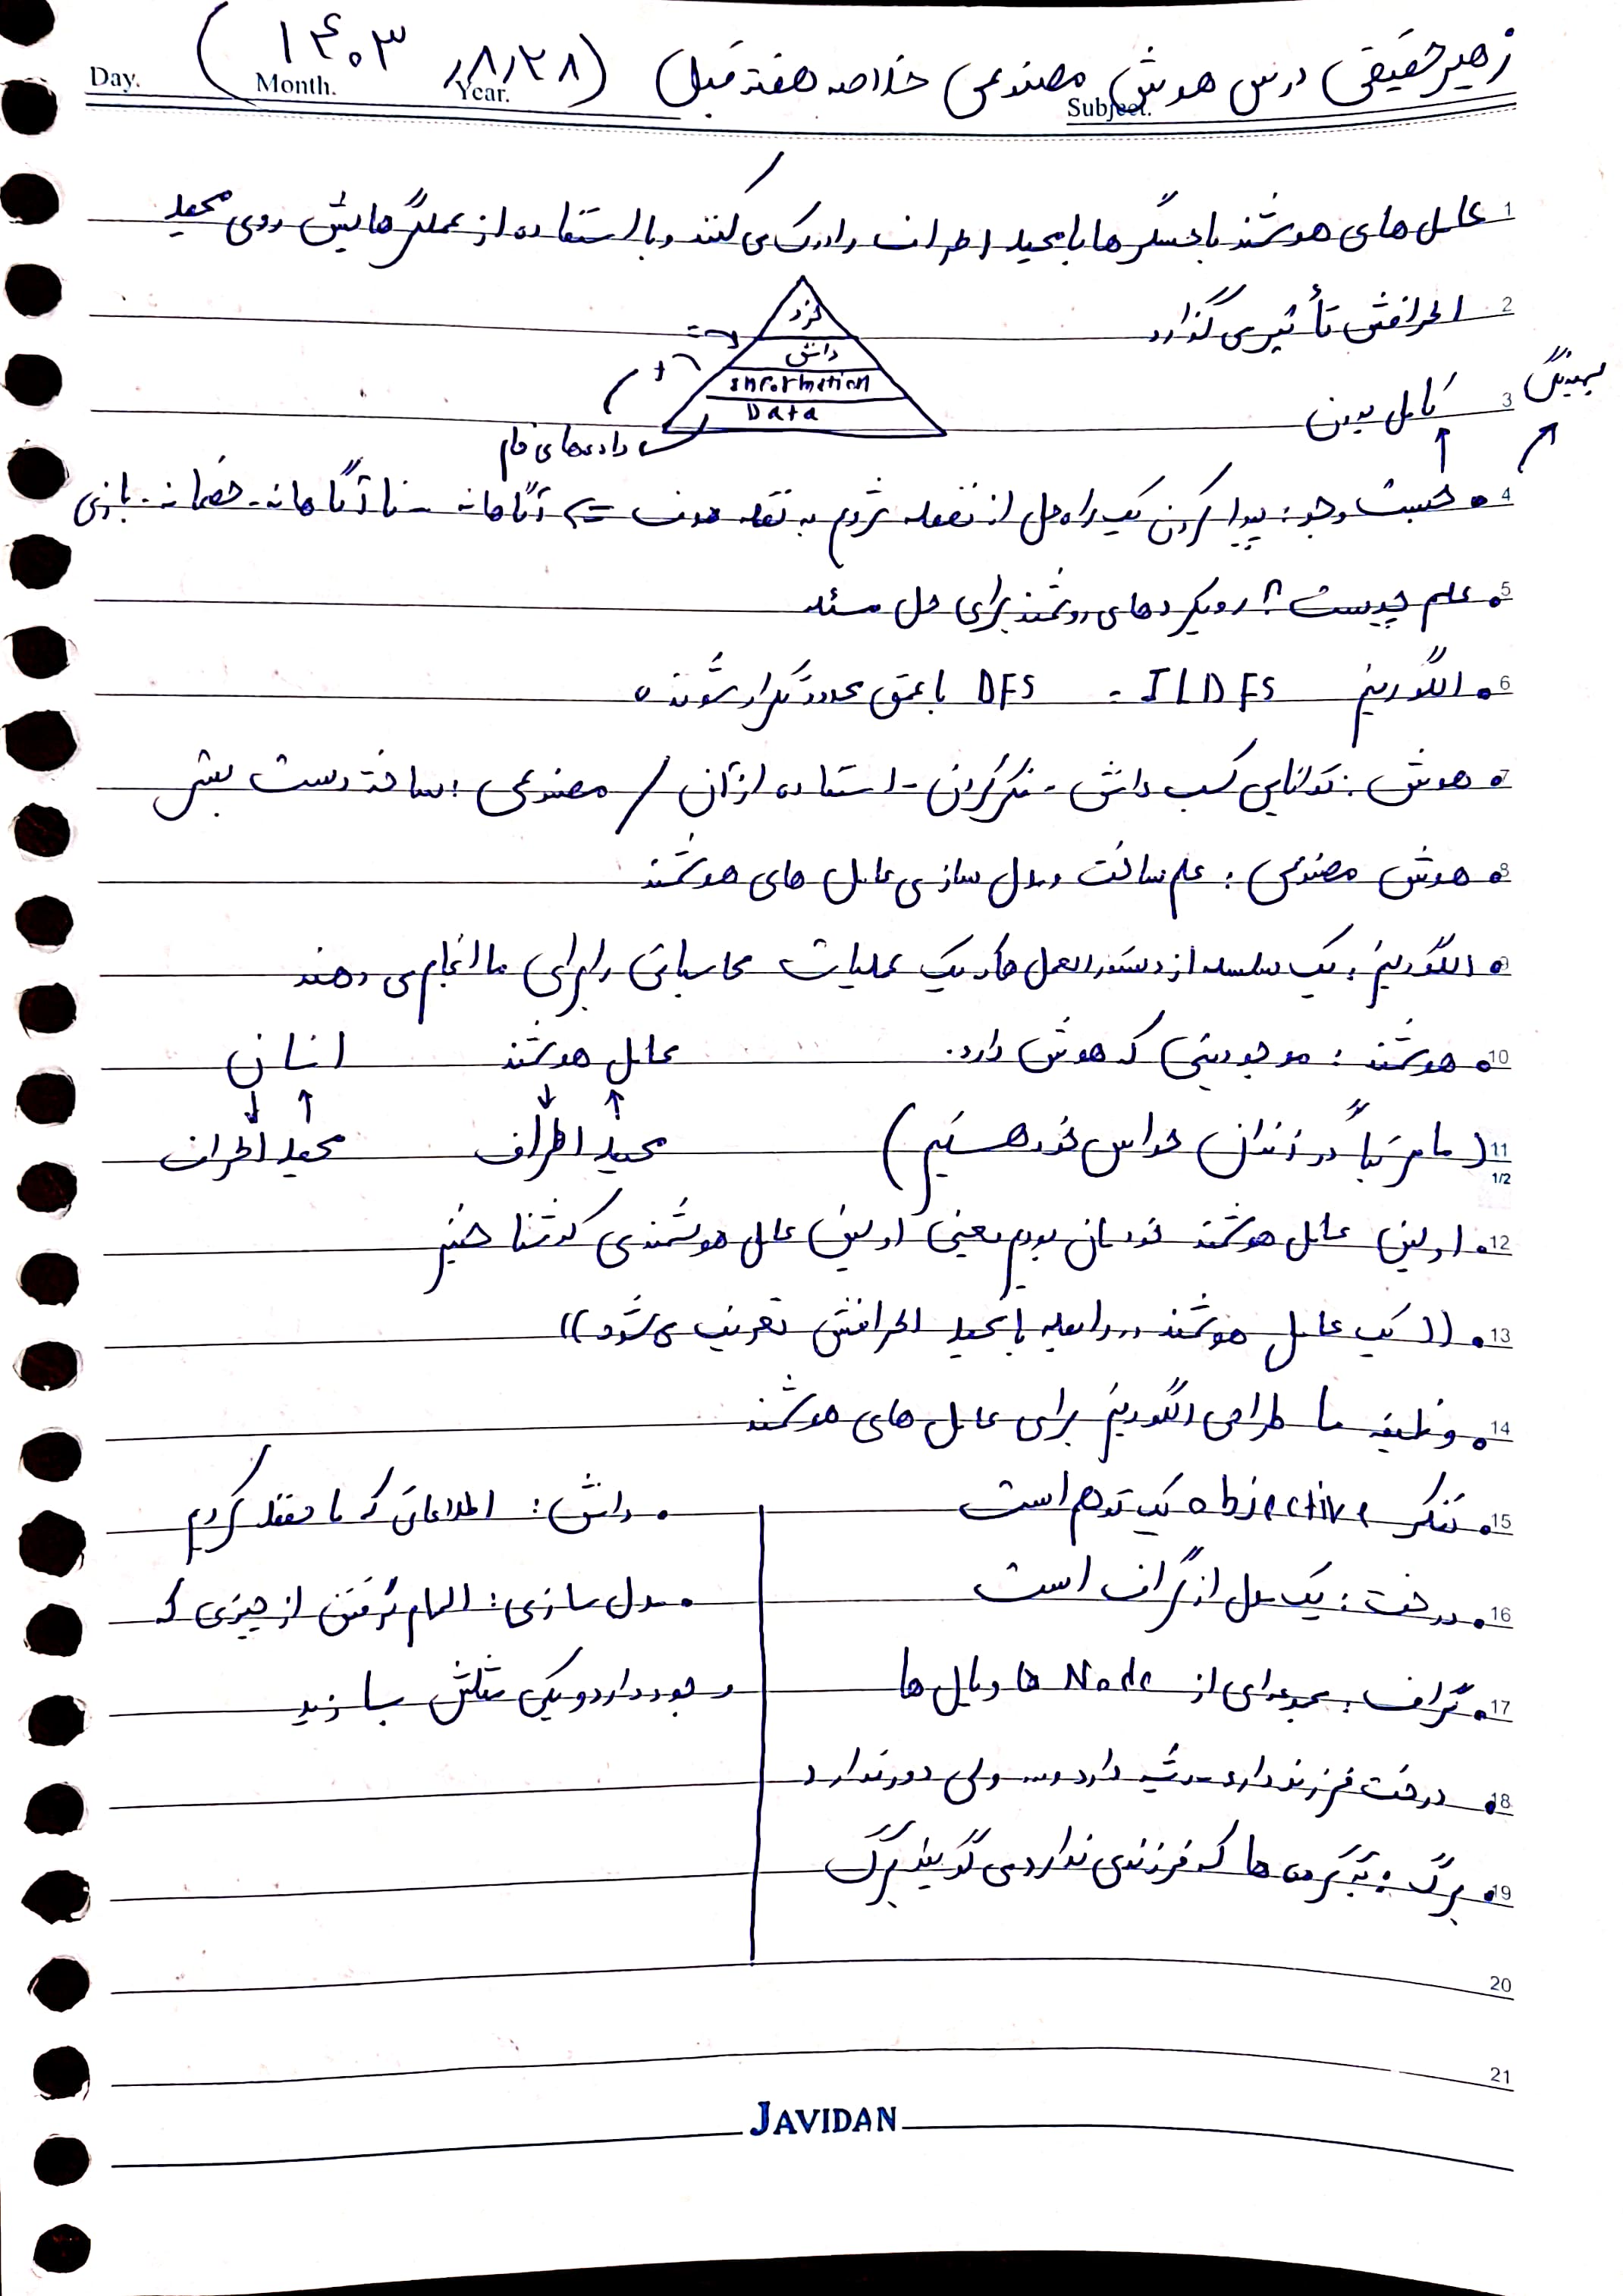 زهیر حقیقی درس هوش مصنوعی خلاصه هفته قبل (۱۴۰۳/۸/۲۸)
Day. Month. Year. Subject.
1 عامل های هوشمند با حسگر ها با محیط اطراف را درک می کنند و با استفاده از عملگر هایش روی محیط
2 اطرافش تأثیر می گذارد
خرد
دانش
Information
Data
داده های خام
3 کامل بودن
بهینگی
4 جست وجو: پیدا کردن یک راه حل از نقطه شروع به نقطه هدف ⇐ آگاهانه - ناآگاهانه - خصمانه - بازی
5 علم چیست؟ رویکردهای روشمند برای حل مسئله
6 الگوریتم ILDFS - DFS با عمق محدود تکرار شونده
7 هوش: توانایی کسب دانش - فکر کردن - استفاده از آن / مصنوعی: ساخته دست بشر
8 هوش مصنوعی: علم ساخت و مدل سازی عامل های هوشمند
9 الگوریتم: یک سلسله از دستورالعمل ها که یک عملیات محاسباتی را برای ما انجام می دهند
10 هوشمند: موجودیتی که هوش دارد. عامل هوشمند انسان
↓ ↑ ↓ ↑
11 (ما مرتباً در زندان حواس خود هستیم) محیط اطراف محیط اطراف
1/2
12 اولین عامل هوشمند خودمان بودیم یعنی اولین عامل هوشمندی که شناختیم
13 ((یک عامل هوشمند در رابطه با محیط اطرافش تعریف می شود))
14 وظیفه ما طراحی الگوریتم برای عامل های هوشمند
15 تفکر objective یک توهم است
16 درخت: یک مدل از گراف است
17 گراف: مجموعه ای از Node ها و یال ها
18 درخت فرزند دارد ریشه دارد و... ولی دور ندارد
19 برگ: به گره ها که فرزندی ندارد می گویند برگ
دانش: اطلاعاتی که ما حفظ کردیم
مدل سازی: الهام گرفتن از چیزی که
وجود دارد و یکی مثلش بسازید
20
21
JAVIDAN